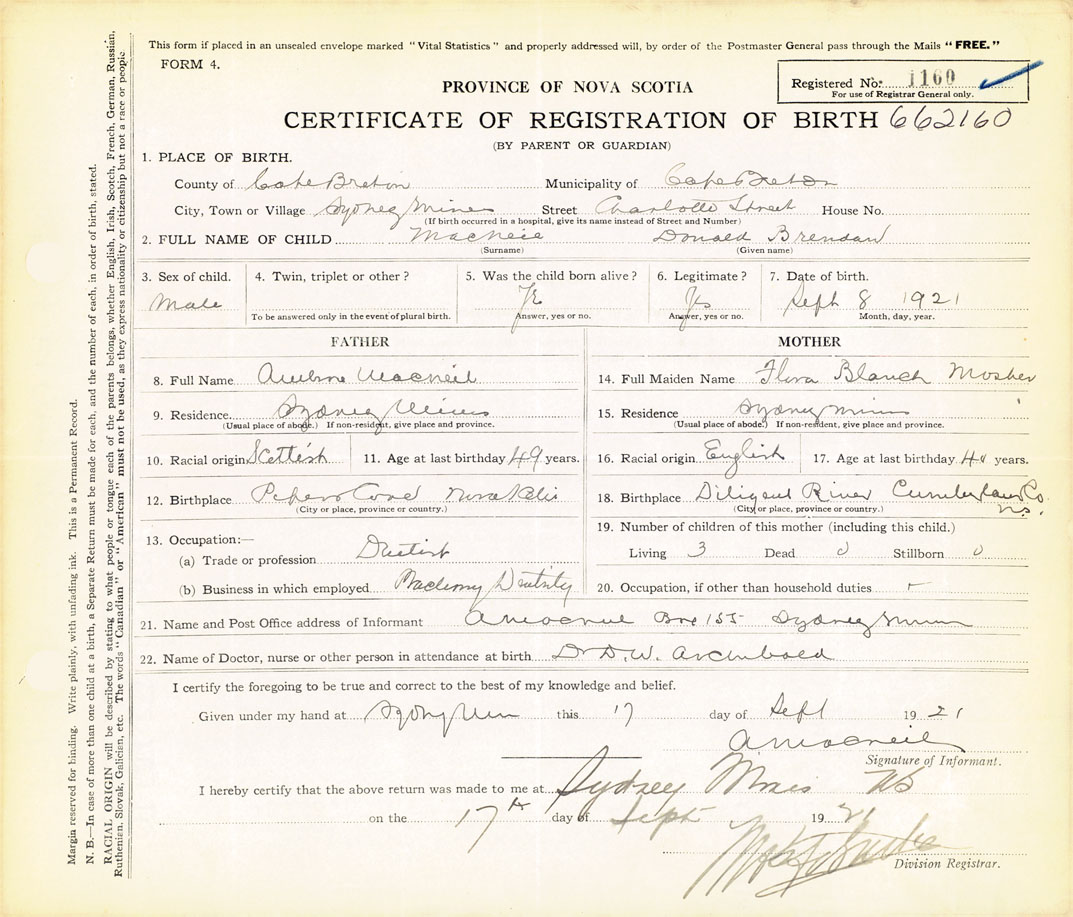 This form if placed in an unsealed envelope marked "Vital Statistics" and properly addressed will, by order of the Postmaster General pass through the Mails "FREE."
FORM 4.
Registered No. 1160
For use of Registrar General only.
PROVINCE OF NOVA SCOTIA
CERTIFICATE OF REGISTRATION OF BIRTH 662160
(BY PARENT OR GUARDIAN)
1. PLACE OF BIRTH.
County of Cape Breton Municipality of Cape Breton
City, Town or Village Sydney Mines Street Charlotte Street House No.
(If birth occurred in a hospital, give its name instead of Street and Number)
2. FULL NAME OF CHILD MacNeil Donald Brendan
(Surname) (Given name)
3. Sex of child. 4. Twin, triplet or other? 5. Was the child born alive? 6. Legitimate? 7. Date of birth.
Male Yes Sept 8 1921
To be answered only in the event of plural birth. Answer, yes or no. Answer, yes or no. Month, day, year.
FATHER MOTHER
8. Full Name Ambrose MacNeil 14. Full Maiden Name Flora Blanch Mosher
9. Residence Sydney Mines 15. Residence Sydney Mines
(Usual place of abode.) If non-resident, give place and province. (Usual place of abode.) If non-resident, give place and province.
10. Racial origin Scottish 11. Age at last birthday 49 years. 16. Racial origin English 17. Age at last birthday years.
12. Birthplace Cove 18. Birthplace Diligent River Cumberland Co.
N.S.
(City or place, province or country.) (City or place, province or country.)
19. Number of children of this mother (including this child.)
13. Occupation:—
(a) Trade or profession Dentist Living 3 Dead 0 Stillborn 0
(b) Business in which employed Dentistry 20. Occupation, if other than household duties -
21. Name and Post Office address of Informant A MacNeil Box 155 Sydney Mines
22. Name of Doctor, nurse or other person in attendance at birth Dr D.W. Archibald
I certify the foregoing to be true and correct to the best of my knowledge and belief.
Given under my hand at Sydney Mines this 17 day of Sept 1921
A MacNeil
Signature of Informant.
I hereby certify that the above return was made to me at Sydney Mines NS
on the 17th day of Sept 1921
Division Registrar.
Margin reserved for binding. Write plainly, with unfading ink. This is a Permanent Record.
N. B.—In case of more than one child at a birth, a Separate Return must be made for each, and the number of each, in order of birth, stated.
RACIAL ORIGIN will be described by stating to what people or tongue each of the parents belongs, whether English, Irish, Scotch, French, German, Russian,
Ruthenian, Slovak, Galician, etc. The words "Canadian" or "American" must not be used, as they express nationality or citizenship but not a race or people.